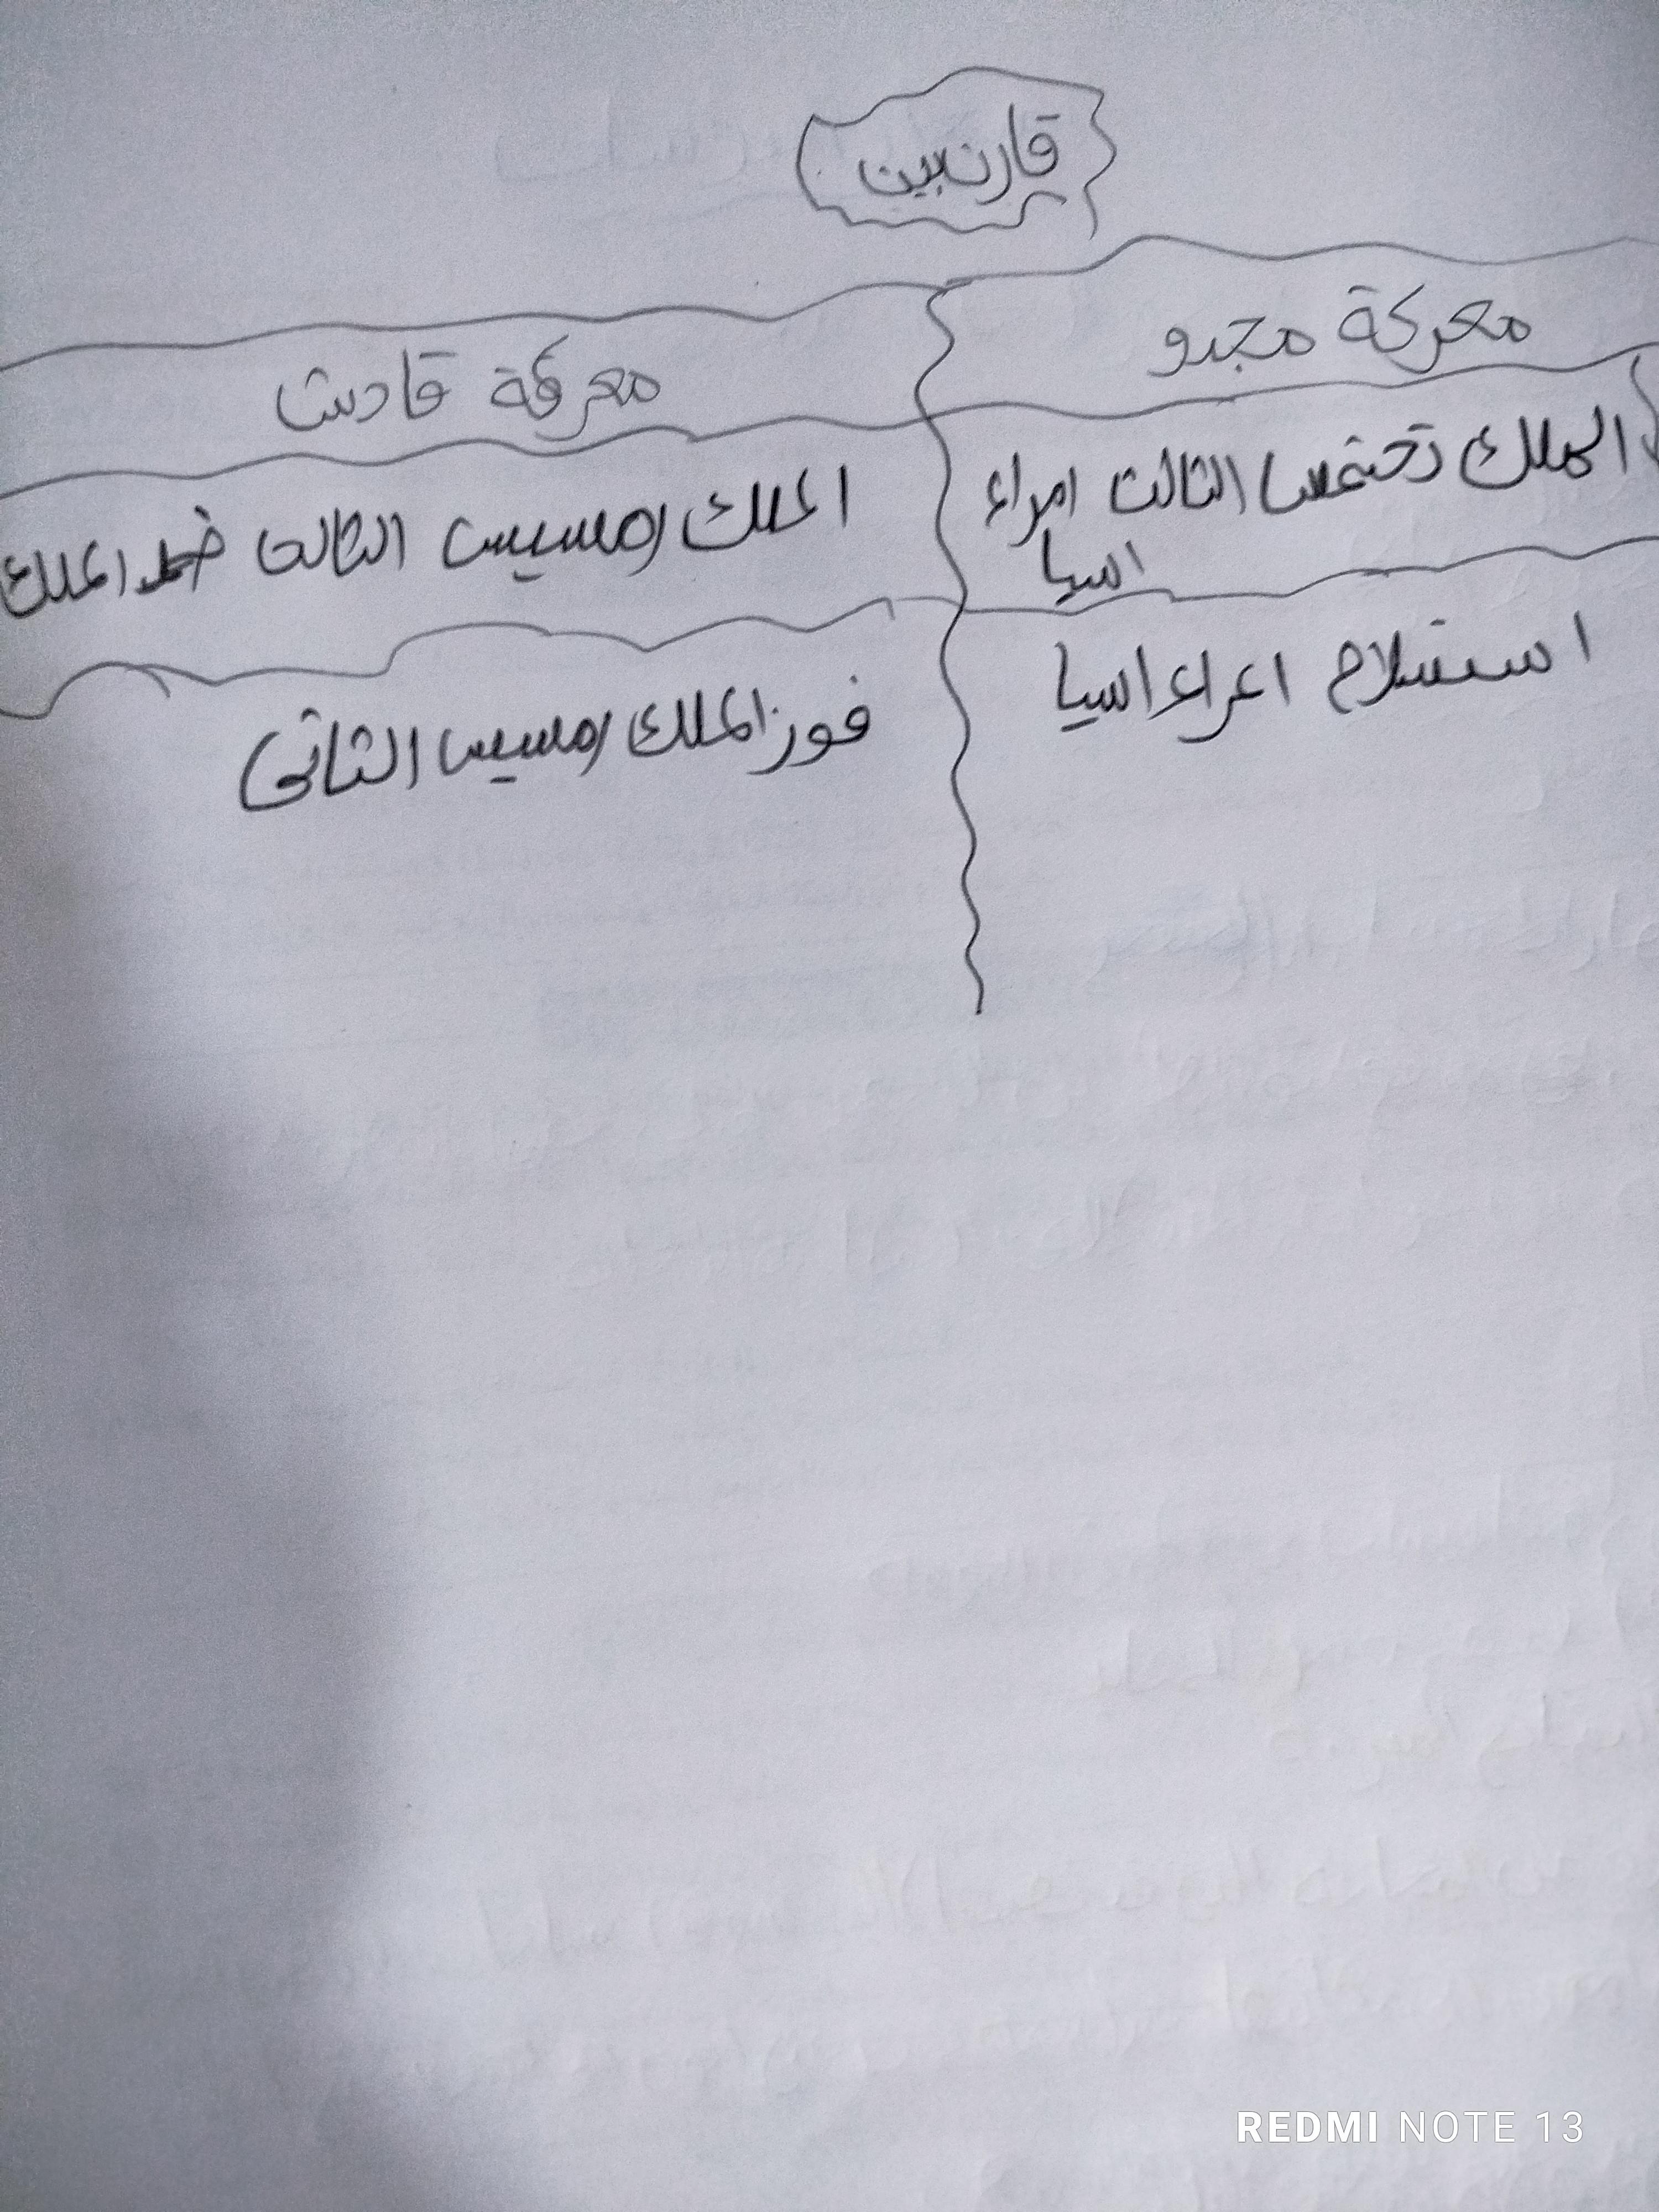 قارن بين
معركة مجدو
معركة قادش
الملك تحتمس الثالث امراء
اسيا
الملك رمسيس الثالث ضد الملك
استسلام امراء اسيا
فوز الملك رمسيس الثاني
REDMI NOTE 13